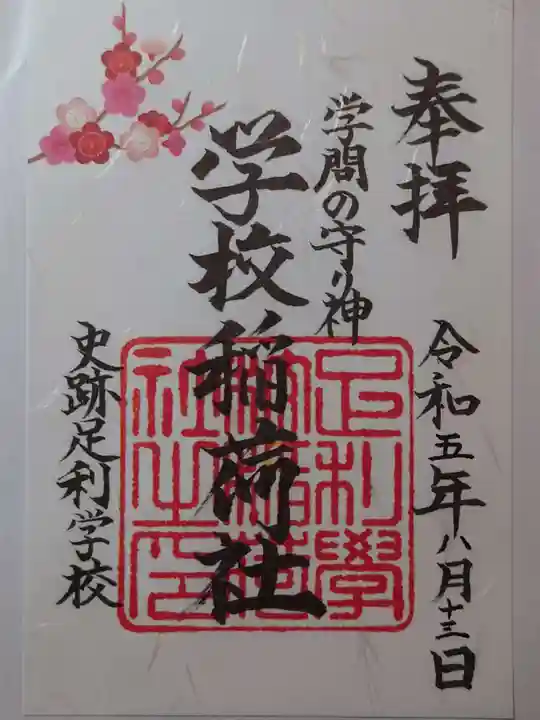 奉拝
令和五年八月十三日
学問の守り神
学校稲荷社
史跡足利学校
足利學
稲荷
社之印